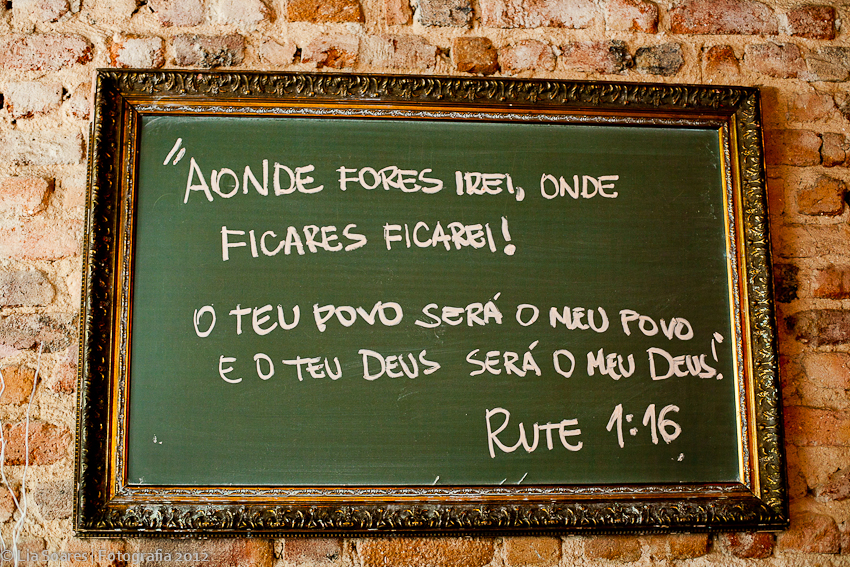 "AONDE FORES IREI, ONDE
FICARES FICAREI!
O TEU POVO SERÁ O MEU POVO
E O TEU DEUS SERÁ O MEU DEUS!
RUTE 1:16
© Lia Soares | Fotografia 2012